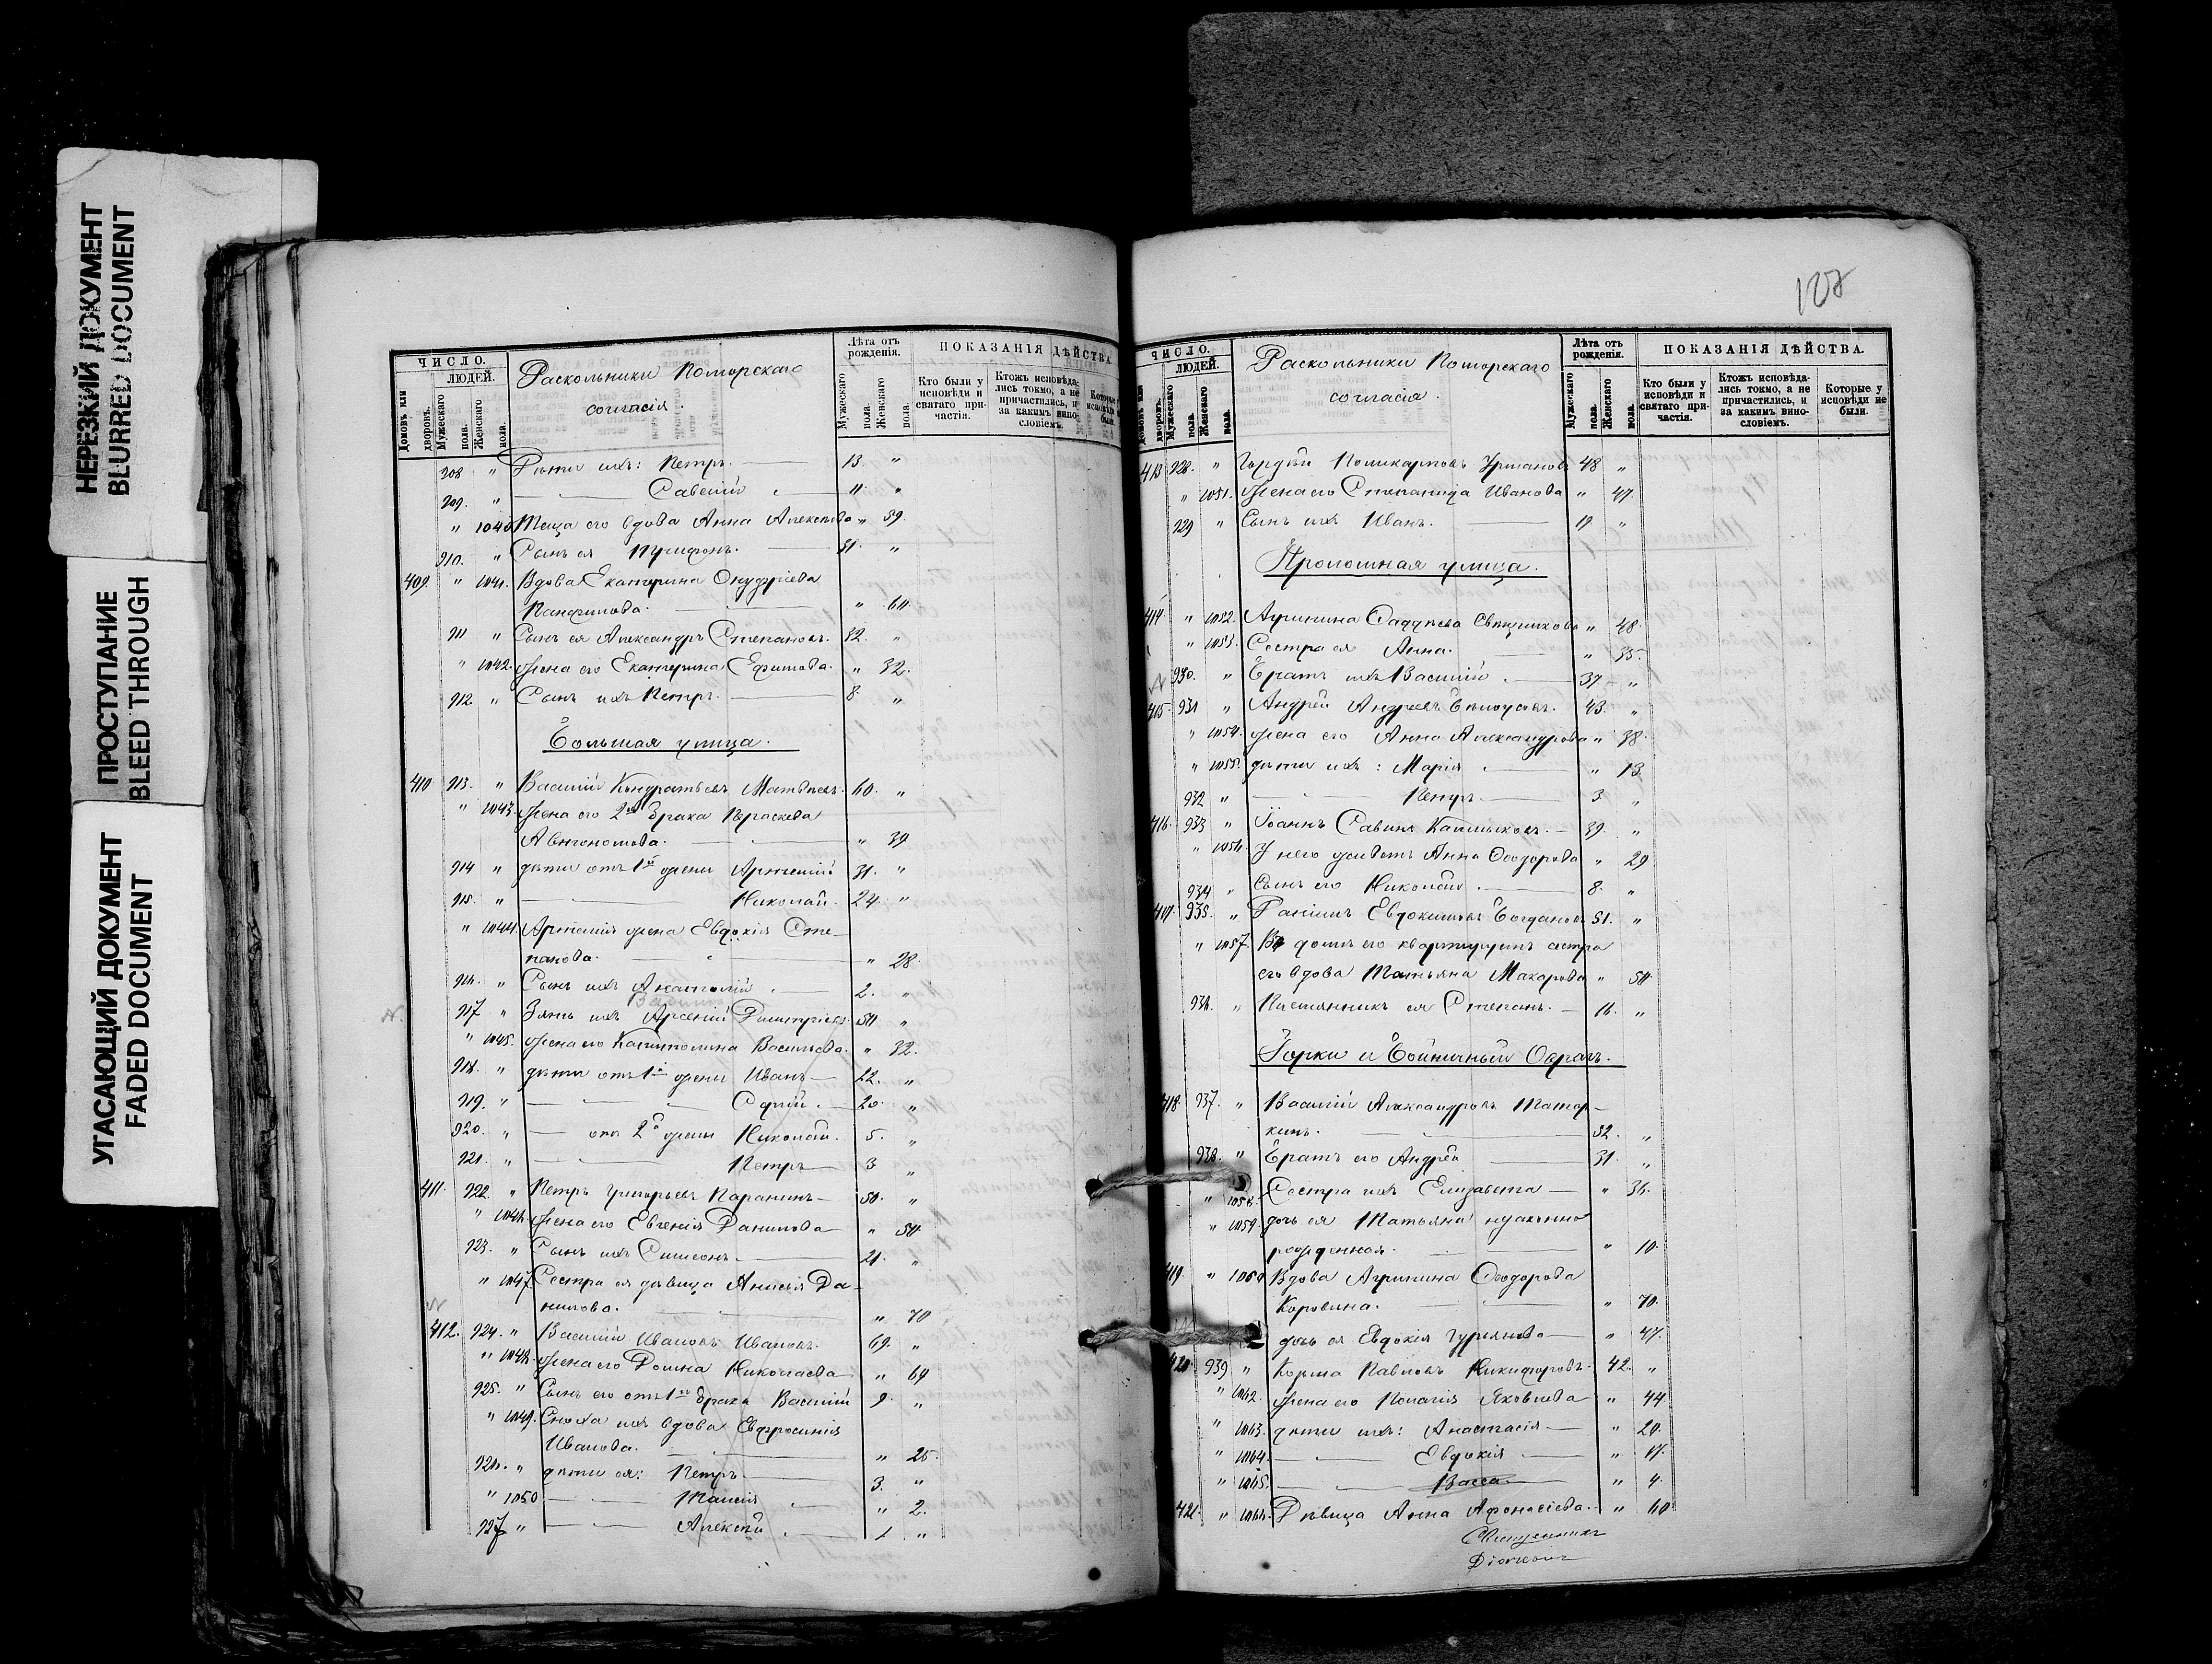 НЕРЕЗКИЙ ДОКУМЕНТ
BLURRED DOCUMENT
ПРОСТУПАНИЕ
BLEED THROUGH
УГАСАЮЩИЙ ДОКУМЕНТ
FADED DOCUMENT
ЧИСЛО.
ЛЮДЕЙ.
Домовъ или дворовъ.
Мужескаго пола.
Женскаго пола.
Раскольники Поморскаго
согласія.
Лѣта отъ рожденія.
Мужескаго пола.
Женскаго пола.
ПОКАЗАНІЯ ДѢЙСТВА
Кто были у исповѣди и святаго причастія.
Ктожъ исповѣдались токмо, а не причастились, и за какимъ винословіемъ.
908 " Дѣти ихъ: Петръ. 13 "
909. " Савелій 11 "
" 1040 Теща его вдова Анна " 59.
910. " Сынъ ея Трифонъ. 31. "
409. " 1041. Вдова Екатерина Онуфріева
Панфилова. " 60
911 " Сынъ ея Александръ Степановъ. 32. "
" 1042. Жена его Екатерина Ефимова. " 32.
912 " Сынъ ихъ Петръ. 8 "
Большая улица.
410 913. " Василій Кондратьевъ Матвѣевъ. 60. "
" 1043. Жена его 2го брака Параскева
Автономова. " 39
914 " дѣти отъ 1й жены Артемій 31. "
915. " Николай. 24. "
" 1044. Артемія жена Евдокія Сте-
панова. " 28.
916. " Сынъ ихъ Анатолій 2. "
917 " Зять ихъ Арсеній Димитріевъ 50 "
" 1045. Жена его Капитолина Васильева. " 32.
918. " дѣти отъ 1й жены Иванъ 22. "
919. " Сергій. 20. "
920. " отъ 2й жены Николай. 5. "
921. " Петръ 3 "
411. 922. " Петръ Григорьевъ Паранинъ 50. "
" 1046. Жена его Евгенія Данилова " 50
923. " Сынъ ихъ Симеонъ 21. "
" 1047. Сестра ея дѣвица Анисья Да-
нилова. " 70
412. 924. " Василій Ивановъ Ивановъ. 69. "
" 1048. Жена его Домна Николаева " 69
925. " Сынъ его отъ 1го брака Василій 9. "
" 1049. Сноха ихъ вдова Евфросинія
Иванова. " 25.
926. " дѣти ея: Петръ 3. "
" 1050 Таисія " 2.
927 " Алексѣй 1 "
107
ЧИСЛО.
ЛЮДЕЙ.
Домовъ или дворовъ.
Мужескаго пола.
Женскаго пола.
Раскольники Поморскаго
согласія.
Лѣта отъ рожденія.
Мужескаго пола.
Женскаго пола.
ПОКАЗАНІЯ ДѢЙСТВА.
Кто были у исповѣди и святаго причастія.
Ктожъ исповѣдались токмо, а не причастились, и за какимъ винословіемъ.
Которые у исповѣди не были.
413 928. " Гордѣй Поликарповъ 48 "
" 1051. Жена его Степанида Иванова " 47.
929 " Сынъ ихъ Иванъ. "
Проломная улица.
414 " 1052. Агрипина " 48.
" 1053. Сестра ея Анна. " 35.
930. " Братъ ихъ Василій 37 "
415. 931 " Андрей Андреевъ Бѣлоусовъ. 43. "
" 1054. Жена его Анна Александрова " 38.
" 1055. дѣти ихъ: Марія " 13
932 " Петръ. 3 "
416. 933 " Іоаннъ Савинъ Калмыковъ. 39. "
" 1056. У него живетъ Анна Ѳеодорова " 29
934 " Сынъ его Николай 8. "
417. 935. " Даніилъ Евдокимовъ Богдановъ 51. "
" 1057. Въ домѣ его квартируетъ сестра
его вдова Татьяна Макарова " 50
936. " Племянникъ ея Степанъ. 16. "
Горки и Бойничный Оврагъ.
418 937. " Василій Александровъ Татар-
кинъ. 32. "
938. " Братъ его Андрей 31. "
" 1058. Сестра ихъ Елизавета " 36.
" 1059. дочь ея Татьяна незаконно
рожденная. " 10.
419. " 1060 Вдова Агрипина Ѳеодорова
Коровина. " 70.
дочь ея Евдокія Гурьянова " 47.
420. 939 " Козьма Павловъ Никифоровъ. 42. "
" 1062. Жена его Пелагія Яковлева " 44
" 1063. дѣти ихъ: Анастасія " 20.
" 1064. Евдокія " 17.
" 1065. Васса " 4.
421. " 1066. Дѣвица Анна Афонасіева. " 60
Священникъ
Діаконъ